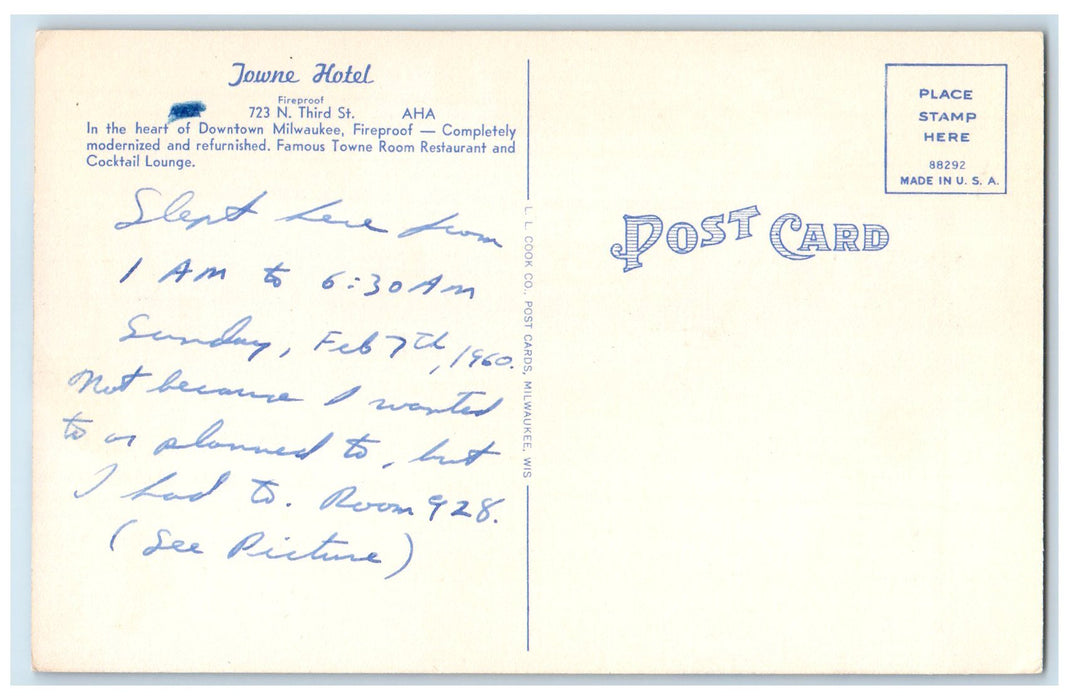 Towne Hotel
Fireproof
723 N. Third St. AHA
In the heart of Downtown Milwaukee, Fireproof — Completely
modernized and refurnished. Famous Towne Room Restaurant and
Cocktail Lounge.
Slept here from
1 AM to 6:30 AM
Sunday, Feb 7th, 1960.
Not because I wanted
to or planned to, but
I had to. Room 928.
(See Picture)
L. L. COOK CO., POST CARDS, MILWAUKEE, WIS
POST CARD
PLACE
STAMP
HERE
88292
MADE IN U. S. A.